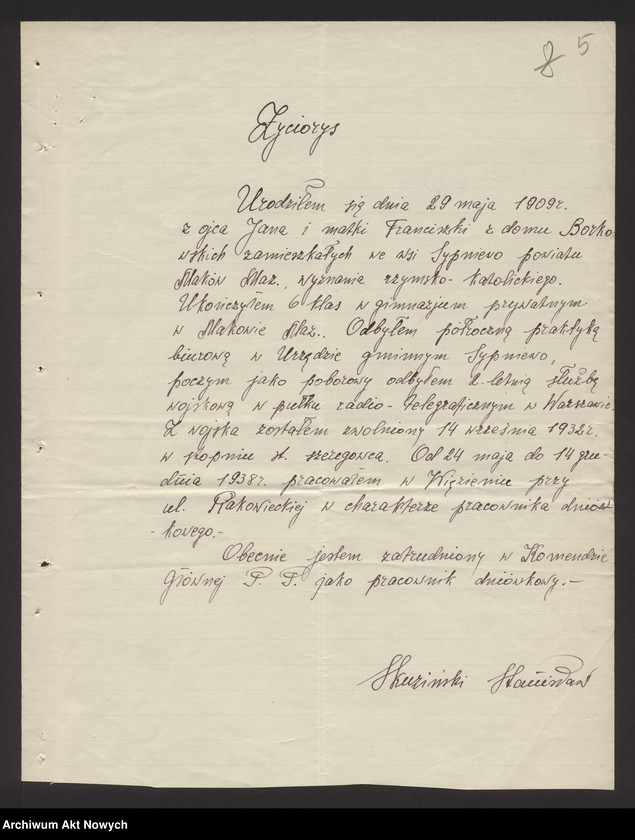 8 5
Życiorys
Urodziłem się dnia 29 maja 1909r.
z ojca Jana i matki Franciszki z domu Borko
wskich zamieszkałych we wsi Sypniewo powiatu
Maków Maz., wyznania rzymsko-katolickiego.
Ukończyłem 6 klas w gimnazjum prywatnym
w Makowie Maz.. Odbyłem półroczną praktykę
biurową w Urzędzie gminnym Sypniewo,
poczym jako poborowy odbyłem 2-letnią służbę
wojskową w pułku radio-telegraficznym w Warszawie.
Z wojska zostałem zwolniony 14 września 1932r.
w stopniu st. szeregowca. Od 24 maja do 14 gru-
dnia 1938r. pracowałem w Więzieniu przy
ul. Rakowieckiej w charakterze pracownika dniów
-kowego.-
Obecnie jestem zatrudniony w Komendzie
Głównej P. P. jako pracownik dniówkowy.-
Skuziński Stanisław
Archiwum Akt Nowych